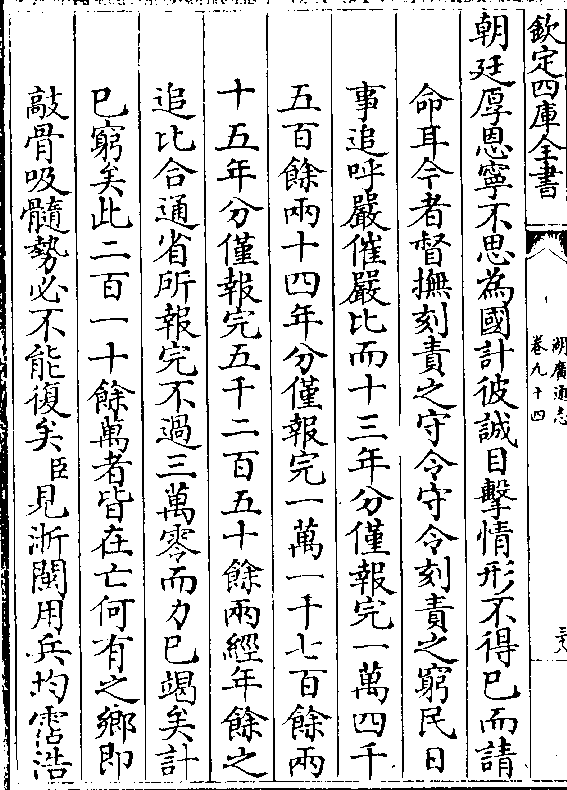 欽定四庫全書
湖廣通志
卷九十四
朝廷厚恩寧不思為國計彼誠目擊情形不得已而請
命耳今者督撫刻責之守令守令刻責之窮民日
事追呼嚴催嚴比而十三年分僅報完一萬四千
五百餘兩十四年分僅報完一萬一千七百餘兩
十五年分僅報完五千二百五十餘兩經年餘之
追比合通省所報完不過三萬零而力已竭矣計
已窮矣此二百一十餘萬者皆在亡何有之鄉即
敲骨吸髓勢必不能復矣臣見浙閩用兵均霑浩